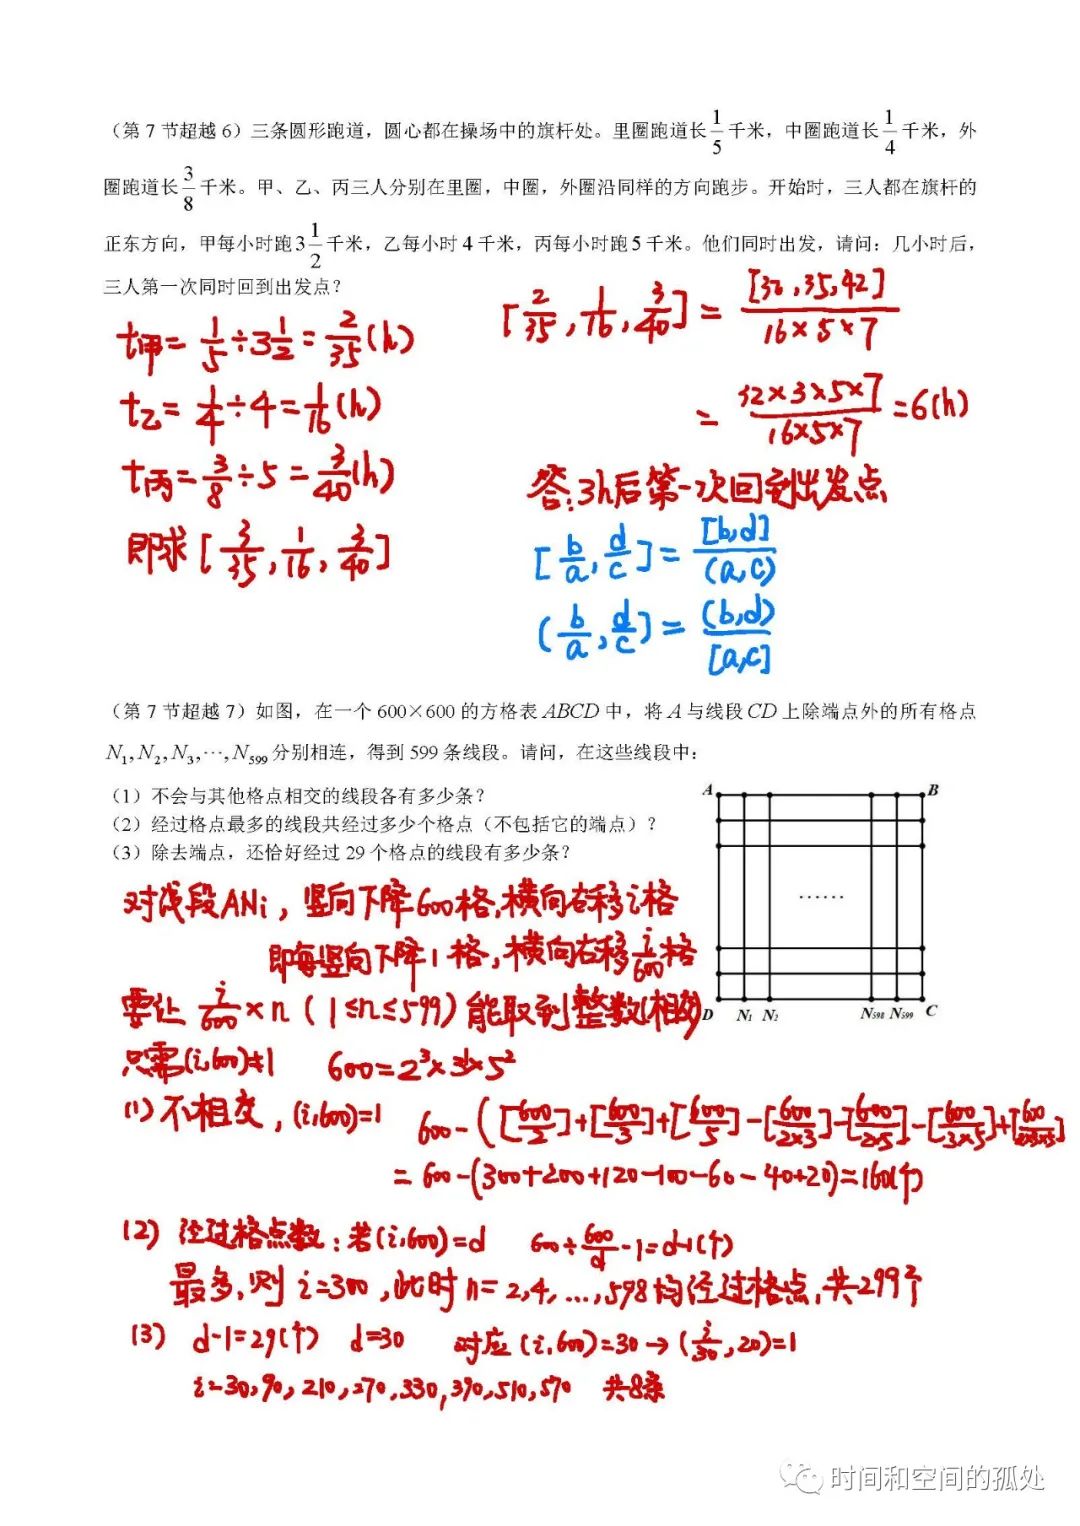 （第7节超越6）三条圆形跑道，圆心都在操场中的旗杆处。里圈跑道长1/5千米，中圈跑道长1/4千米，外
圈跑道长3/8千米。甲、乙、丙三人分别在里圈，中圈，外圈沿同样的方向跑步。开始时，三人都在旗杆的
正东方向，甲每小时跑3 1/2千米，乙每小时4千米，丙每小时跑5千米。他们同时出发，请问：几小时后，
三人第一次同时回到出发点？
t甲=1/5÷3 1/2=2/35(h)
t乙=1/4÷4=1/16(h)
t丙=3/8÷5=3/40(h)
即求[3/35,1/16,3/40]
[2/35,1/16,3/40]=[32,35,42]/(16×5×7)
=(32×3×5×7)/(16×5×7)=6(h)
答:3h后第一次回到出发点
[b/a,d/c]=[b,d]/(a,c)
(b/a,d/c)=(b,d)/[a,c]
（第7节超越7）如图，在一个600×600的方格表ABCD中，将A与线段CD上除端点外的所有格点
N₁,N₂,N₃,⋯,N₅₉₉分别相连，得到599条线段。请问，在这些线段中：
（1）不会与其他格点相交的线段各有多少条？
（2）经过格点最多的线段共经过多少个格点（不包括它的端点）？
（3）除去端点，还恰好经过29个格点的线段有多少条？
A B
……
D N₁ N₂ N₅₉₈ N₅₉₉ C
对线段ANi，竖向下降600格,横向右移i格
即每竖向下降1格，横向右移i/600格
要让 i/600×n（1≤n≤599）能取到整数(相交)
只需(i,600)≠1 600=2³×3×5²
(1)不相交，(i,600)=1 600-([600/2]+[600/3]+[600/5]-[600/2×3]-[600/2×5]-[600/3×5]+[600/2×3×5]
=600-(300+200+120-100-60-40+20)=160(个)
(2) 经过格点数:若(i,600)=d 600÷600/d-1=d-1(个)
最多,则i=300,此时n=2,4,…,598均经过格点,共299个
(3) d-1=29(个) d=30 对应(i,600)=30→(i/30,20)=1
i=30,90,210,270,330,390,510,570 共8条
时间和空间的孤处